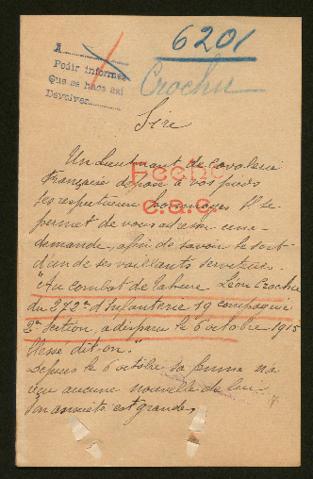 6201
A
Pedir informes
Que se haga así
Devolver
Crochu
Sire
Un Lieutenant de cavalerie
française dépose à vos pieds
ses respectueux hommages et se
permet de vous adresser une
demande, afin de savoir le sort
d'un de ses vaillants serviteurs.
Fecho
c.a.c.
Au combat de Léon Crochu
du 272e d'Infanterie 19 compagnie
2e Section, a disparu le 6 octobre 1915
dit-on."
Depuis le 6 octobre sa femme n'a
eu aucune nouvelle de lui
Son anxiété est grande,